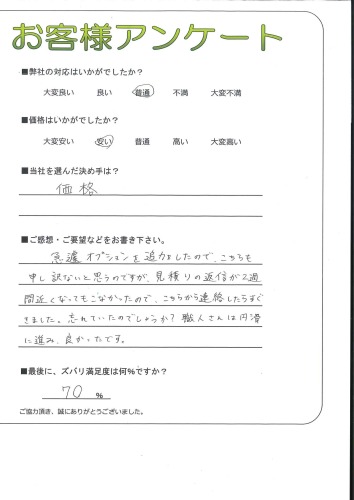 お客様アンケート
■弊社の対応はいかがでしたか？
大変良い 良い 普通 不満 大変不満
■価格はいかがでしたか？
大変安い 安い 普通 高い 大変高い
■当社を選んだ決め手は？
価格
■ご感想・ご要望などをお書き下さい。
急遽オプションを追加したので、こちらも
申し訳ないと思うのですが、見積りの返信が2週
間近くなってもこなかったので、こちらから連絡したらすぐ
きました。忘れていたのでしょうか？職人さんは円滑
に進み、良かったです。
■最後に、ズバリ満足度は何%ですか？
70 %
ご協力頂き、誠にありがとうございました。